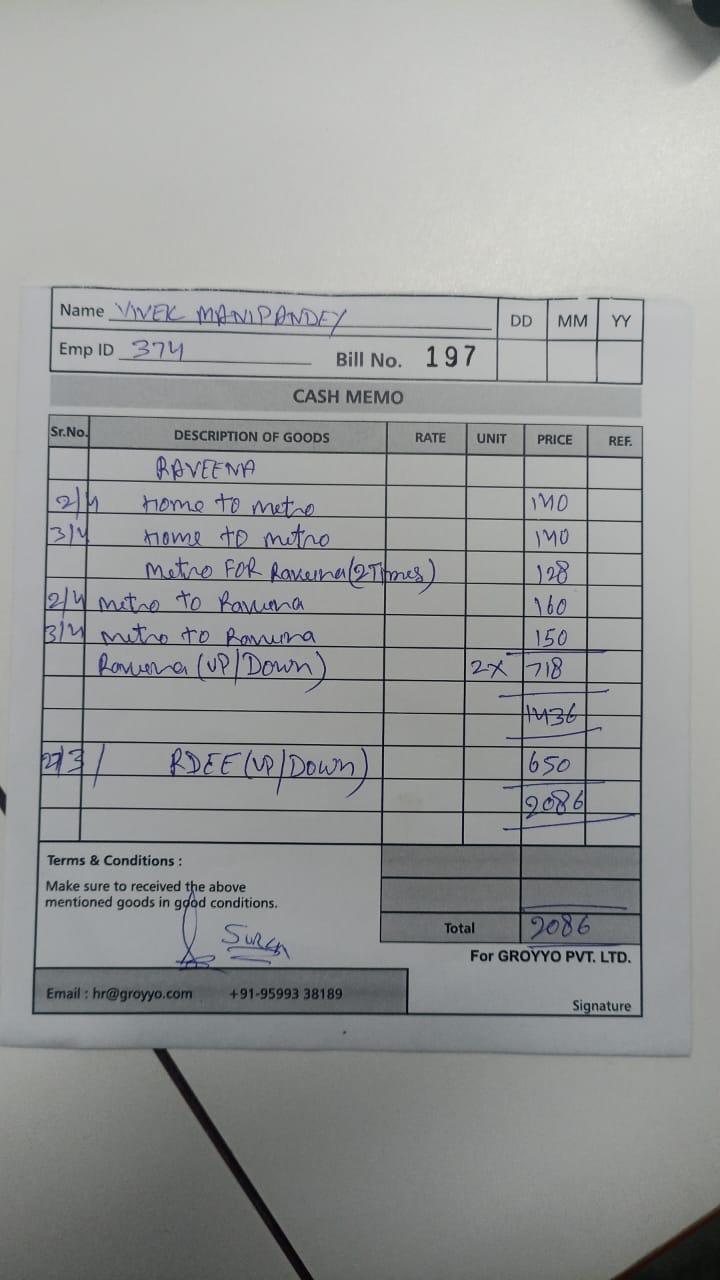 Name VIVEK MANIPANDEY DD MM YY
Emp ID 374 Bill No. 197
CASH MEMO
Sr.No. DESCRIPTION OF GOODS RATE UNIT PRICE REF.
RAVEENA
2/4 Home to metro 140
3/4 Home to metro 140
Metro FOR Raveena (2 Times) 128
2/4 metro to Raveena 160
3/4 metro to Raveena 150
Raveena (UP/Down) 2x 718
1436
27/3/ RDEE (UP/Down) 650
2086
Terms & Conditions :
Make sure to received the above
mentioned goods in good conditions.
Total 2086
For GROYYO PVT. LTD.
Email : hr@groyyo.com +91-95993 38189
Signature